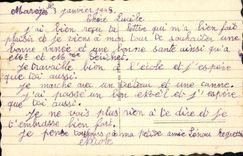 Marcq 3 janvier 1948
Chère Lucette
J'ai bien reçu ta lettre qui m'a bien fait
plaisir et je viens à mon tour te souhaiter une
bonne année et une bonne santé ainsi qu'a
Mr et Mme
Je travaille bien à l'école et j'espère
que toi aussi.
Je marche avec un plâtre et une canne.
J'ai passé un bon Noël et j'espère
que toi aussi.
Je ne vois plus rien à te dire et je
t'embrasse bien fort.
Je pense toujours à ma petite amie